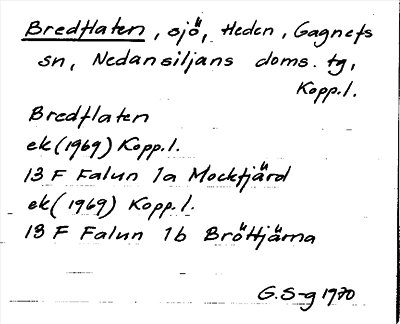 Bredflaten, sjö, Heden, Gagnefs
sn, Nedansiljans doms. tg,
Kopp.l.
Bredflaten
ek (1969) Kopp.l.
13 F Falun 1a Mockfjärd
ek (1969) Kopp.l.
13 F Falun 1b Bröttjärna
G.S-g 1970